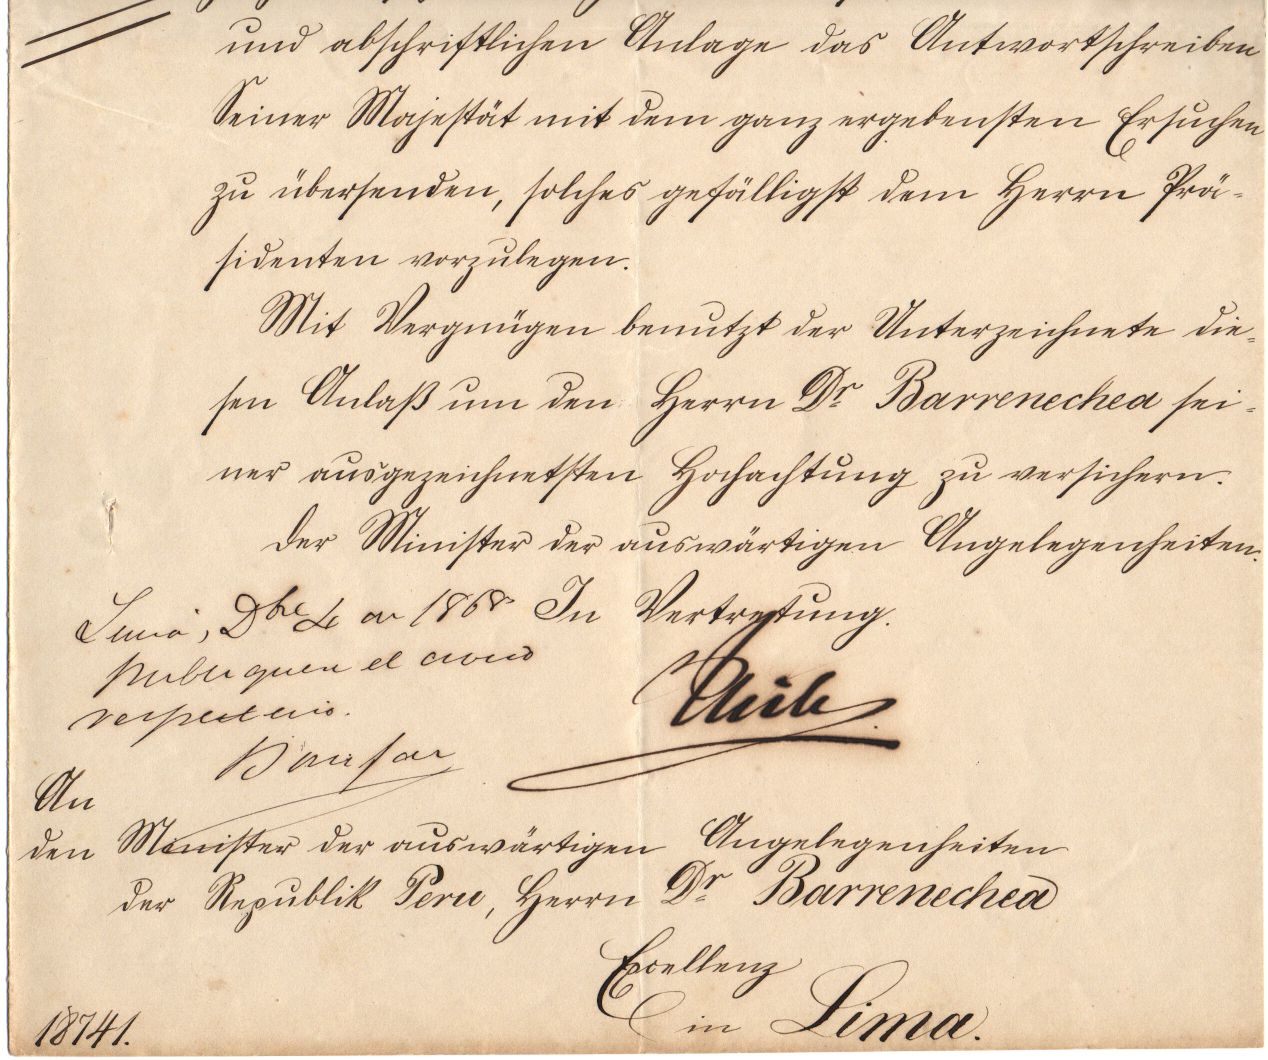 und abschriftlichen Anlage das Antwortschreiben
Seiner Majestät mit dem ganz ergebensten Ersuchen
zu übersenden, solches gefälligst dem Herrn Prä-
sidenten vorzulegen.
Mit Vergnügen benutzt der Unterzeichnete die-
sen Anlaß um den Herrn Dr Barrenechea sei-
ner ausgezeichnetsten Hochachtung zu versichern.
Der Minister der auswärtigen Angelegenheiten.
In Vertretung.
Lima, Dbre 4 de 1868
Publiquen el
An
den Minister der auswärtigen Angelegenheiten
der Republik Peru, Herrn Dr Barrenechea
Excellenz
in Lima.
18741.